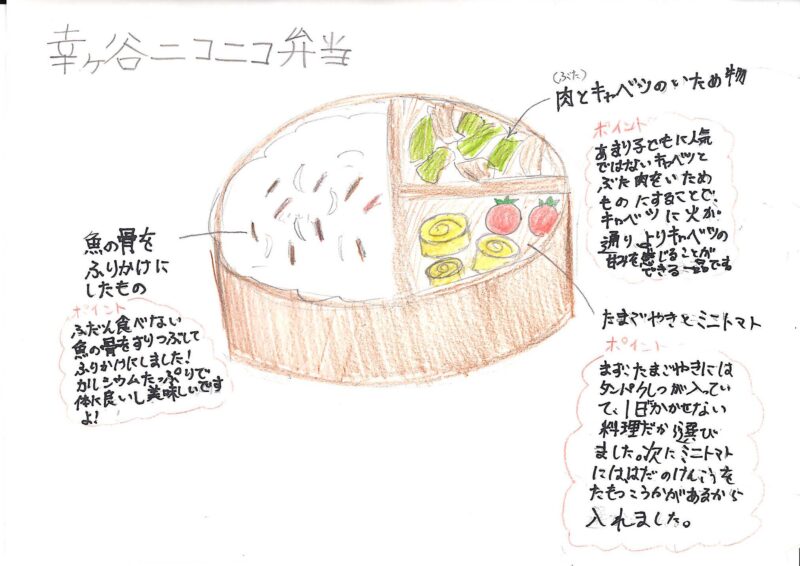 幸ヶ谷ニコニコ弁当
(ぶた)
肉とキャベツのいため物
ポイント
あまり子どもに人気
ではないキャベツと
ぶた肉をいため
ものにすることで、
キャベツに火が
通りよりキャベツの
甘みを感じることが
できる一品です
魚の骨を
ふりかけに
したもの
ポイント
ふだん食べない
魚の骨をすりつぶして
ふりかけにしました!
カルシウムたっぷりで
体に良いし美味しいです
よ!
たまごやきとミニトマト
ポイント
まず、たまごやきには
タンパクしつが入ってい
て、1日かかせない
料理だから選び
ました。次にミニトマト
にははだのけんこうを
たもつこうかがあるから
入れました。